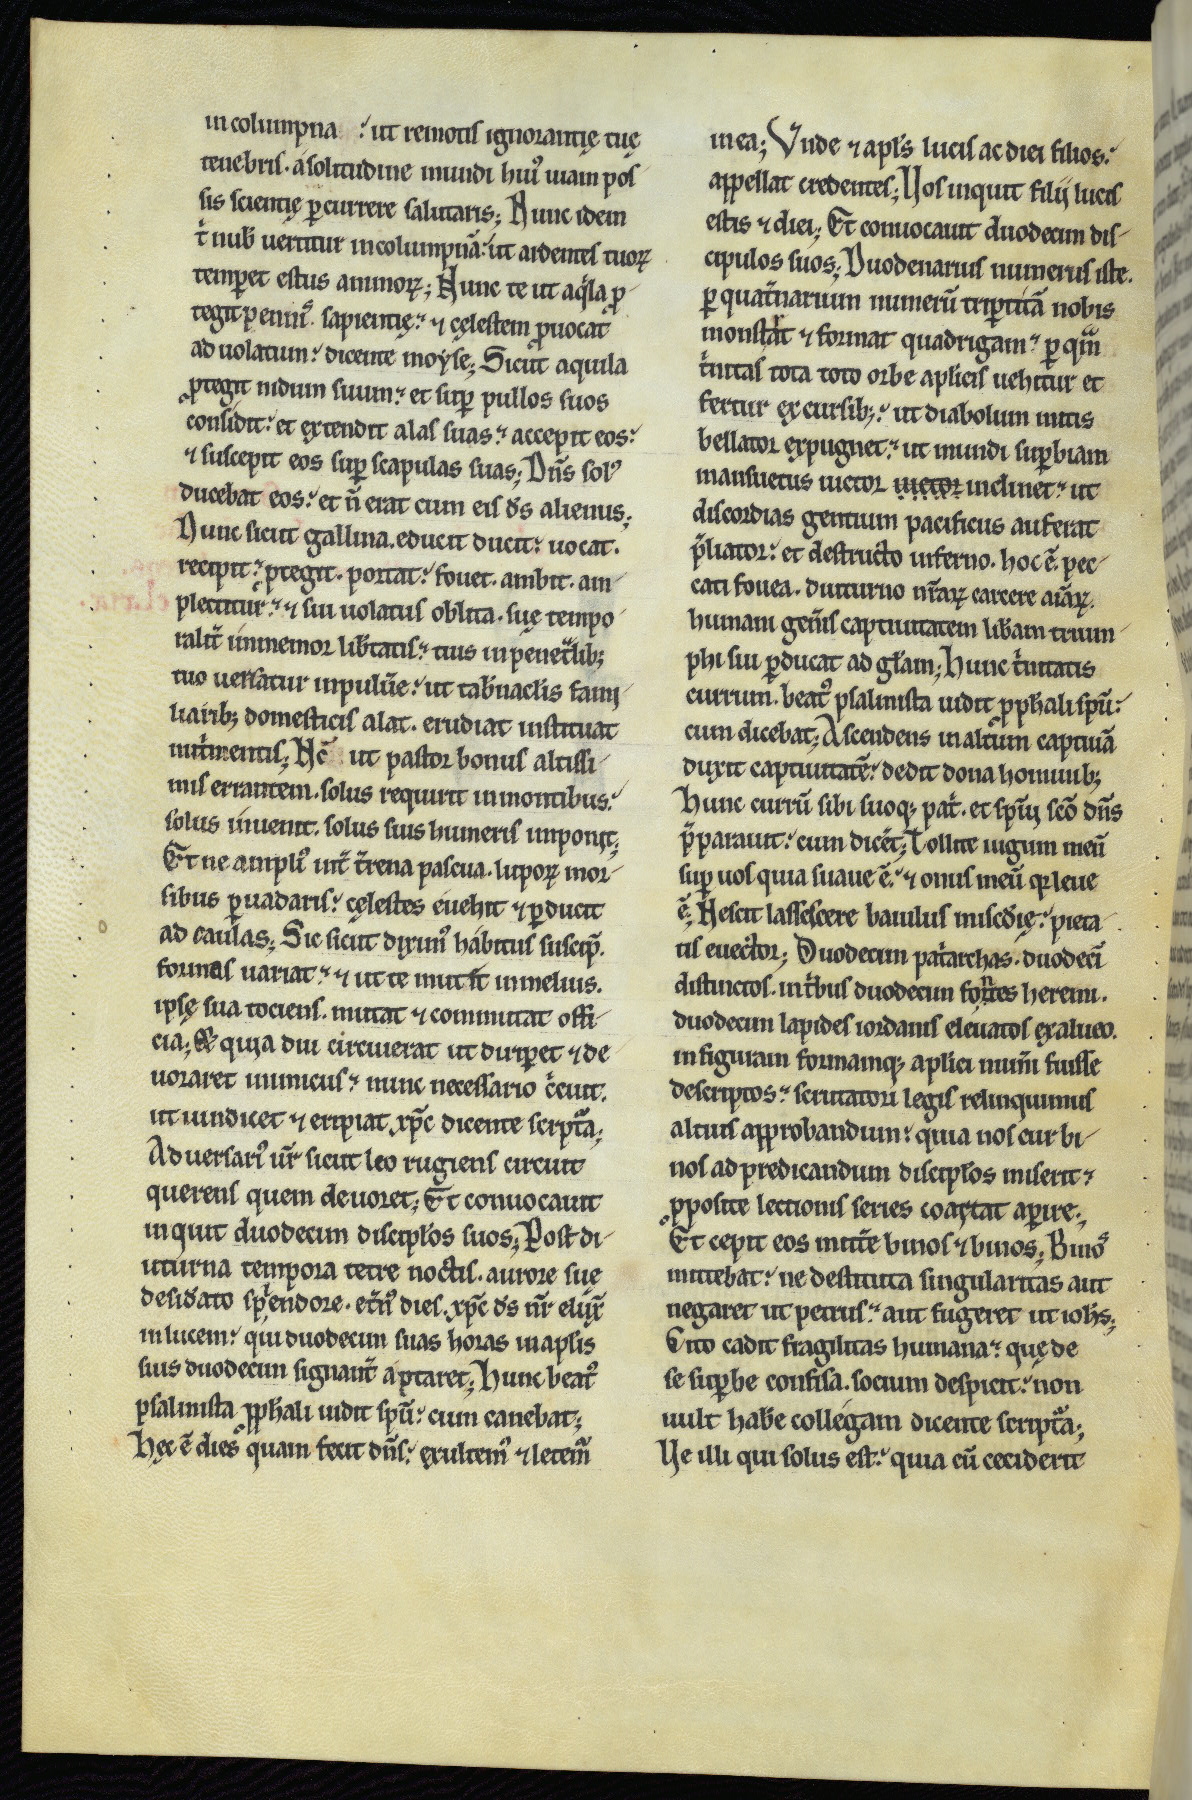 in columpna ut remotis ignorantię tuę
tenebris. a solitudine mundi huiꝰ uiam pos-
sis scientię ꝑcurrere salutaris; Nunc idem
t̄ nub̄ uertitur in columpnā. ut ardentes tuoꝝ
temꝑet estus animoꝝ; Nunc te ut aq̄la ꝓ-
tegit ꝑ ennīꝰ sapientię. ⁊ cęlestem ꝓuocat
ad uolatum. dicente moẏse; Sicut aquila
ꝓtegit nidum suum. et suꝑ pullos suos
considit. et extendit alas suas. accepit eos.
⁊ suscepit eos suꝑ scapulas suas; Dn̄s solꝰ
ducebat eos. et n̄ erat cum eis d̄s alienus;
Nunc sicut gallina. educit ducit. uocat.
recipit. ꝓtegit. portat. fouet. ambit. am-
plectitur. ⁊ sui uolatus oblita. suę tempo
ralit̄ inmemor lib̄tatis. tuis in penet̄lib;
tuo uersatur in puluē. ut tab̄naclis fami-
liarib; domesticis alat. erudiat instituat
nut̄mentis; Nc̄ ut pastor bonus altissi-
mis errantem. solus requirit in montibus.
solus inuenit. solus suis humeris imponit;
Et ne ampliꝰ int̄ t̄rena pascua. lupoꝝ mor-
sibus ꝑuadaris. cęlestes euehit ⁊ ꝑducit
ad caulas; Sic sicut diximꝰ habitus suscip̄.
formas uariat. ⁊ ut te mutet in melius.
ipsę sua tociens. mutat ⁊ commutat offi-
cia; Et quia diu circuierat ut diriꝑet ⁊ de-
uoraret inimicus. nunc necessario c̄cuit.
ut uindicet ⁊ eripiat xp̄c dicente script̄a;
Aduersariꝰ ur̄ sicut leo rugiens circuit
querens quem deuoret; Et conuocauit
inquit duodecim discipl̄os suos; Post di-
uturna tempora tetre noctis. aurore sue
desid̄ato splendore. et̄nꝰ dies. xp̄c d̄s nr̄ elux̄
in lucem. qui duodecim suas horas in apl̄is
suis duodecim signant̄ aptaret; Hunc beatꝰ
psalmista ꝓphali uidit spū. cum canebat;
Hęc ē dies quam fecit dn̄s. exultemꝰ ⁊ letem̄
in ea; Vnde ⁊ apl̄s lucis ac diei filios.
appellat credentes; Uos inquit filij lucis
estis ⁊ diei; Et conuocauit duodecim dis-
cipulos suos; Duodenarius numerus iste.
ꝑ quat̄narium numerū triꝑtitā nobis
monstrat ⁊ format quadrigam. ꝑ qm̄
t̄nitas tota toto orbe aplicis uehitur et
fertur excursib;. ut diabolum mitis
bellator expugnet. ut mundi suꝑbiam
mansuetus uictor uictor inclinet. ut
discordias gentium pacificus auferat
p̄liator. et destructo inferno. hoc ē. pec-
cati fouea. diuturno nr̄aꝝ carcere aīaꝝ.
humani gen̄is captiuitatem lib̄am trium-
phi sui ꝑducat ad gl̄am; Hunc t̄nitatis
currum. beatꝰ psalmista uidit ꝓphali spū.
cum dicebat; Ascendens in altum captiuā
duxit captiuitatē. dedit dona hominib;
Hunc currū sibi suoq; pat̄. et sp̄ij sc̄o dn̄s
p̄parauit. cum dicēt; Tollite iugum meū
suꝑ uos quia suaue ē. ⁊ onus meū qꝛ leue
ē; Nescit lassescere baiulus misc̄dię. pieta-
tis euector; Duodecim pat̄archas. duodecī
distinctos. in t̄bus duodecim fontes heremi.
duodecim lapides iordanis eleuatos ex alueo.
in figuram formamq; aplici num̄i fuisse
descriptos. scrutatori legis relinquimus
altius approbandum. quia nos cur bi-
nos ad predicandum discipl̄os miserit.
ꝓposite lectionis series coartat aꝑire.;
Et cepit eos mitt̄e binos ⁊ binos; Binos
mittebat. ne destituta singularitas aut
negaret ut petrus. aut fugeret ut ioh̄s;
Cito cadit fragilitas humana. quę de
se suꝑbe confisa. socium despicit. non
uult hab̄e collegam dicente script̄a;
Ue illi qui solus est. quia cū ceciderit